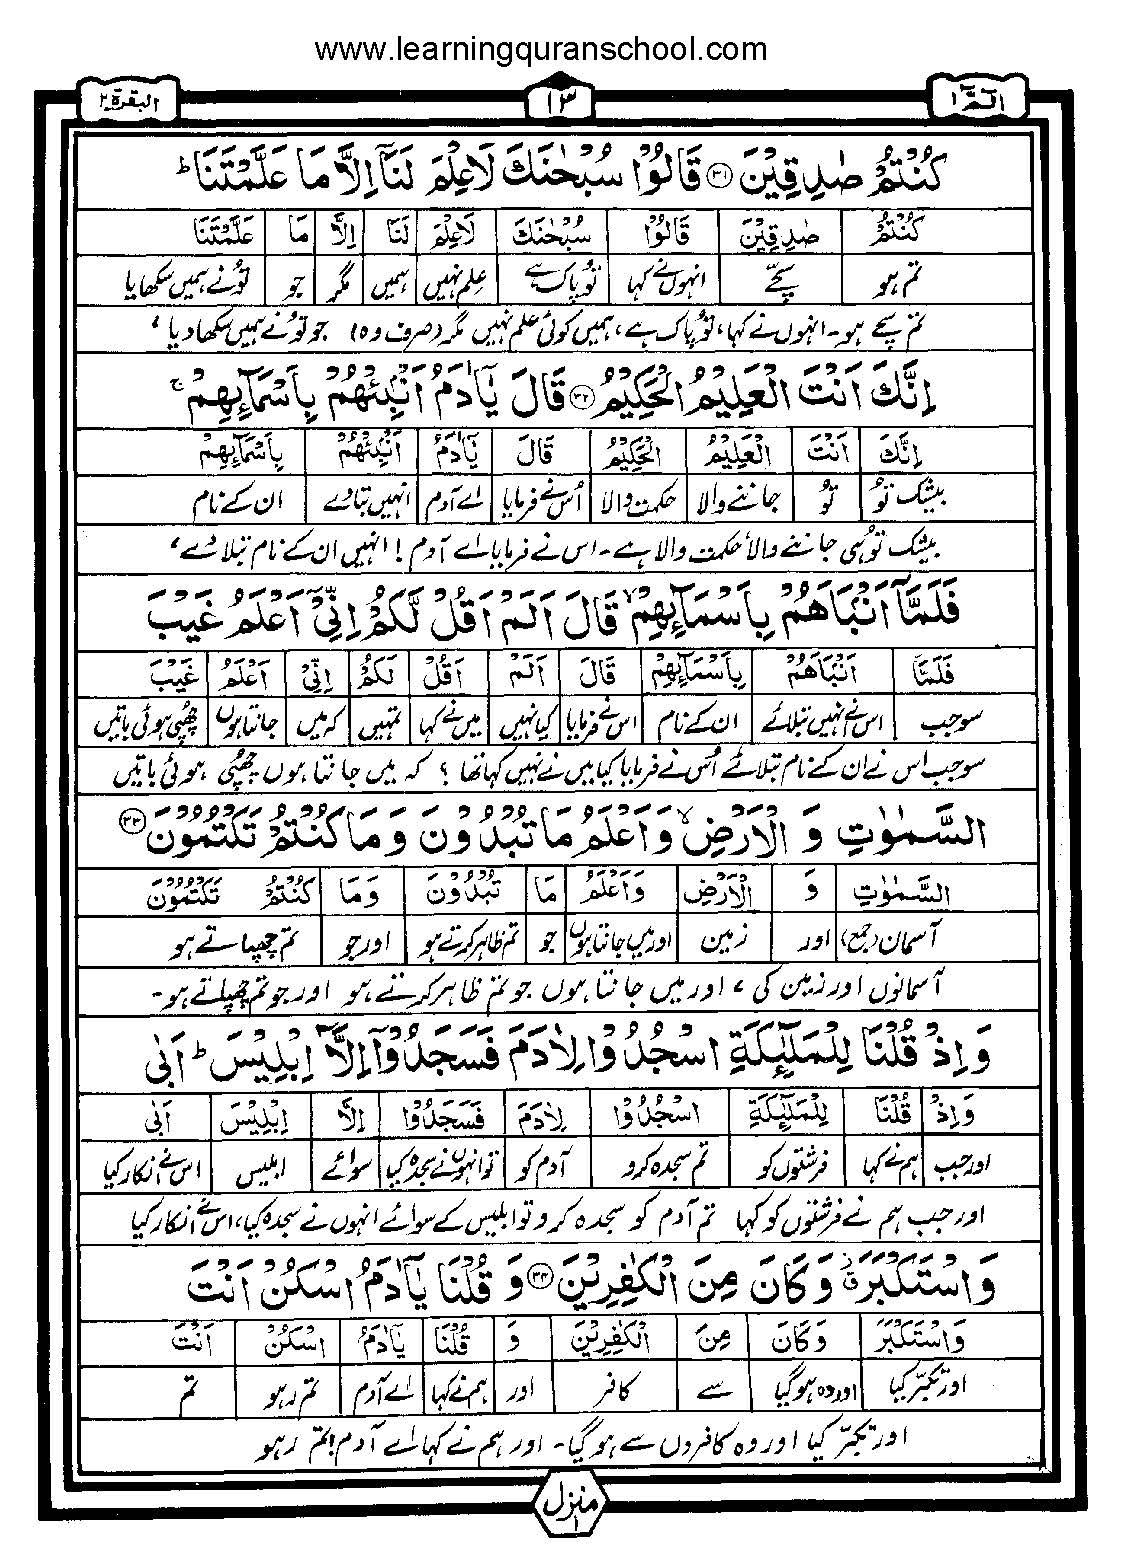 www.learningquranschool.com
الٓمّٓ ١ ١٣ البقرة ٢
كُنْتُمْ صٰدِقِيْنَ ﴿٣١﴾ قَالُوْا سُبْحٰنَكَ لَاعِلْمَ لَنَآ اِلَّا مَا عَلَّمْتَنَا ؕ
كُنْتُمْ صٰدِقِيْنَ قَالُوْا سُبْحٰنَكَ لَاعِلْمَ لَنَا اِلَّا مَا عَلَّمْتَنَا
تم ہو سچّے انہوں نے کہا تو پاک ہے علم نہیں ہمیں مگر جو تُو نے ہمیں سکھایا
تم سچے ہو۔ انہوں نے کہا، تُو پاک ہے، ہمیں کوئی علم نہیں مگر (صرف وہ) جو تُو نے ہمیں سکھا دیا،
اِنَّكَ اَنْتَ الْعَلِيْمُ الْحَكِيْمُ ﴿٣٢﴾ قَالَ يٰٓاٰدَمُ اَنْۢبِئْهُمْ بِاَسْمَآئِهِمْ ۚ
اِنَّكَ اَنْتَ الْعَلِيْمُ الْحَكِيْمُ قَالَ يٰٓاٰدَمُ اَنْۢبِئْهُمْ بِاَسْمَآئِهِمْ
بیشک تُو تُو جاننے والا حکمت والا اُس نے فرمایا اے آدم انہیں بتا دے ان کے نام
بیشک تُو ہی جاننے والا حکمت والا ہے۔ اس نے فرمایا اے آدم! انہیں ان کے نام بتلا دے،
فَلَمَّآ اَنْۢبَاَهُمْ بِاَسْمَآئِهِمْ ۙ قَالَ اَلَمْ اَقُلْ لَّكُمْ اِنِّيْٓ اَعْلَمُ غَيْبَ
فَلَمَّا اَنْۢبَاَهُمْ بِاَسْمَآئِهِمْ قَالَ اَلَمْ اَقُلْ لَكُمْ اِنِّيْ اَعْلَمُ غَيْبَ
سو جب اس نے انہیں بتلائے ان کے نام اس نے فرمایا کیا نہیں میں نے کہا تمہیں کہ میں جانتا ہوں چھپی ہوئی باتیں
سو جب اس نے ان کے نام بتلائے اُس نے فرمایا کیا میں نے نہیں کہا تھا؟ کہ میں جانتا ہوں چھپی ہوئی باتیں
السَّمٰوٰتِ وَ الْاَرْضِ ۙ وَاَعْلَمُ مَا تُبْدُوْنَ وَ مَا كُنْتُمْ تَكْتُمُوْنَ ﴿٣٣﴾
السَّمٰوٰتِ وَ الْاَرْضِ وَاَعْلَمُ مَا تُبْدُوْنَ وَمَا كُنْتُمْ تَكْتُمُوْنَ
آسمان (جمع) اور زمین اور میں جانتا ہوں جو تم ظاہر کرتے ہو اور جو تم چھپاتے ہو
آسمانوں اور زمین کی، اور میں جانتا ہوں جو تم ظاہر کرتے ہو اور جو تم چھپاتے ہو۔
وَ اِذْ قُلْنَا لِلْمَلٰٓئِكَةِ اسْجُدُوْا لِاٰدَمَ فَسَجَدُوْٓا اِلَّآ اِبْلِيْسَ ؕ اَبٰى
وَاِذْ قُلْنَا لِلْمَلٰٓئِكَةِ اسْجُدُوْا لِاٰدَمَ فَسَجَدُوْا اِلَّا اِبْلِيْسَ اَبٰى
اور جب ہم نے کہا فرشتوں کو تم سجدہ کرو آدم کو تو انہوں نے سجدہ کیا سوائے ابلیس اس نے انکار کیا
اور جب ہم نے فرشتوں کو کہا تم آدم کو سجدہ کرو تو ابلیس کے سوائے انہوں نے سجدہ کیا، اس نے انکار کیا
وَ اسْتَكْبَرَ ٭ۗ وَ كَانَ مِنَ الْكٰفِرِيْنَ ﴿٣٤﴾ وَ قُلْنَا يٰٓاٰدَمُ اسْكُنْ اَنْتَ
وَاسْتَكْبَرَ وَكَانَ مِنَ الْكٰفِرِيْنَ وَ قُلْنَا يٰٓاٰدَمُ اسْكُنْ اَنْتَ
اور تکبّر کیا اور وہ ہو گیا سے کافر اور ہم نے کہا اے آدم تم رہو تم
اور تکبّر کیا اور وہ کافروں سے ہو گیا۔ اور ہم نے کہا اے آدم! تم رہو
منزل ١